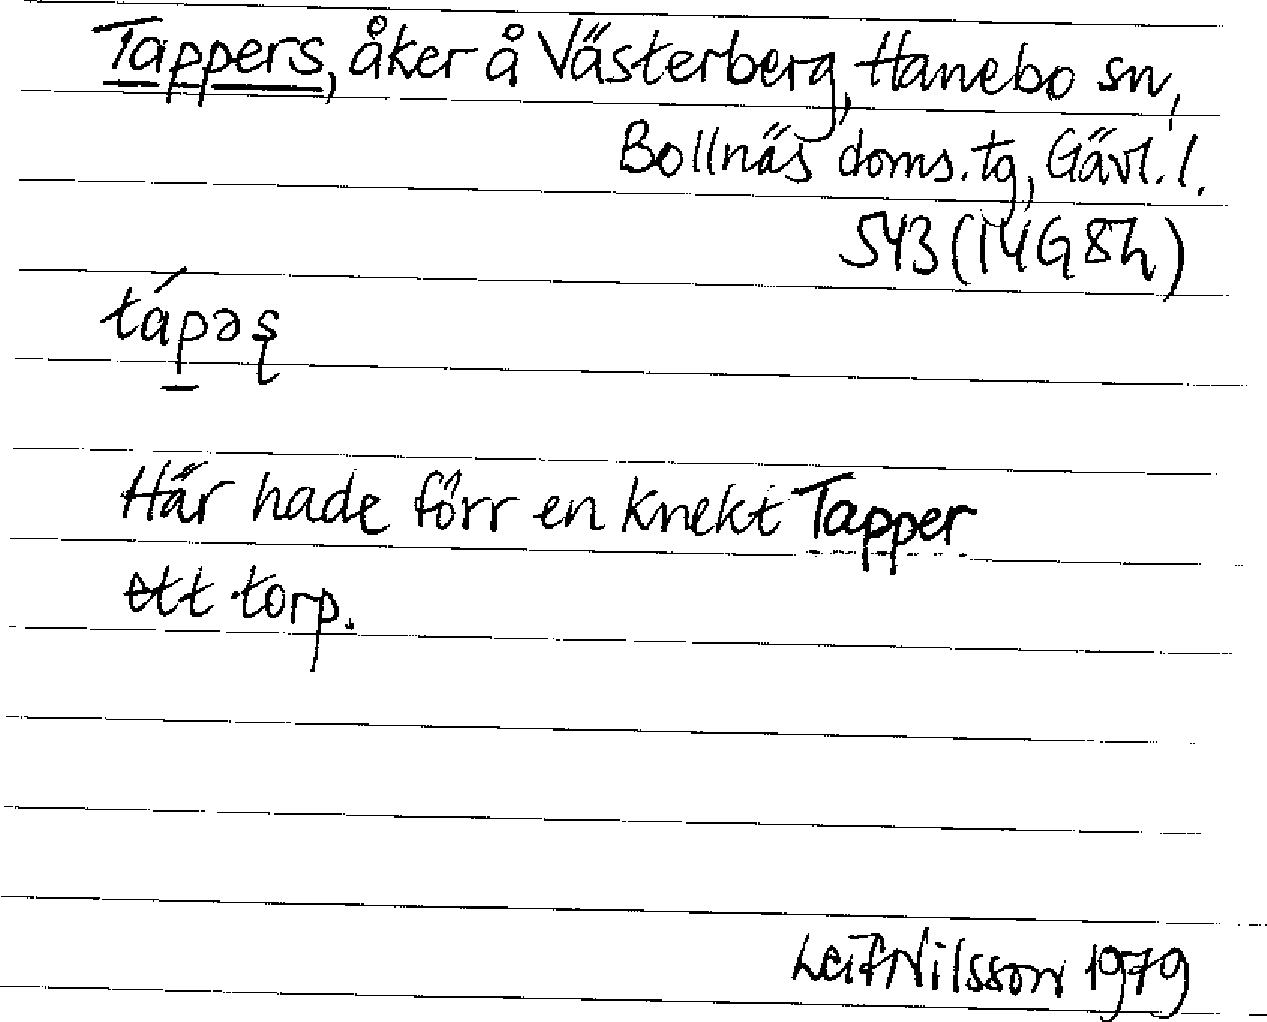 Tappers, åker å Västerberg, Hanebo sn,
Bollnäs doms.tg, Gävl.l.
543 (14G8h)
tápəʂ
Här hade förr en knekt Tapper
ett torp.
Leif Nilsson 1979